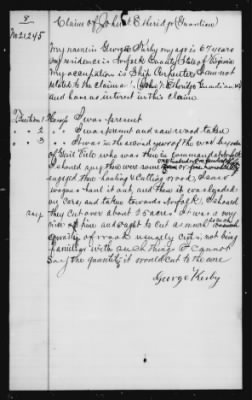 8
No 21245
Claim of John E Etheridge Guardian
My name is George Kirby my age is 67 years
my residence is Norfolk County State of Virginia
My occupation is Ship Carpenter I am not
related to the claimant (John E Etheridge Guardian &c)
and have no interest in this claim
Question 1 I was present
" " 2 I was present and saw wood taken
" " 3 It was in the second year of the war by order
of who was in command
I should say there were
engaged there hauling & cutting wood, I saw
wagons haul it out, and there it was loaded
on cars, and taken towards Norfolk, I should
say they cut over about 35 acres It was a very
nice of pine and ought to cut as much
quantity of wood usually cuts, not being
familiar with such things I cannot
say the quantity it would cut to the acre
George Kirby